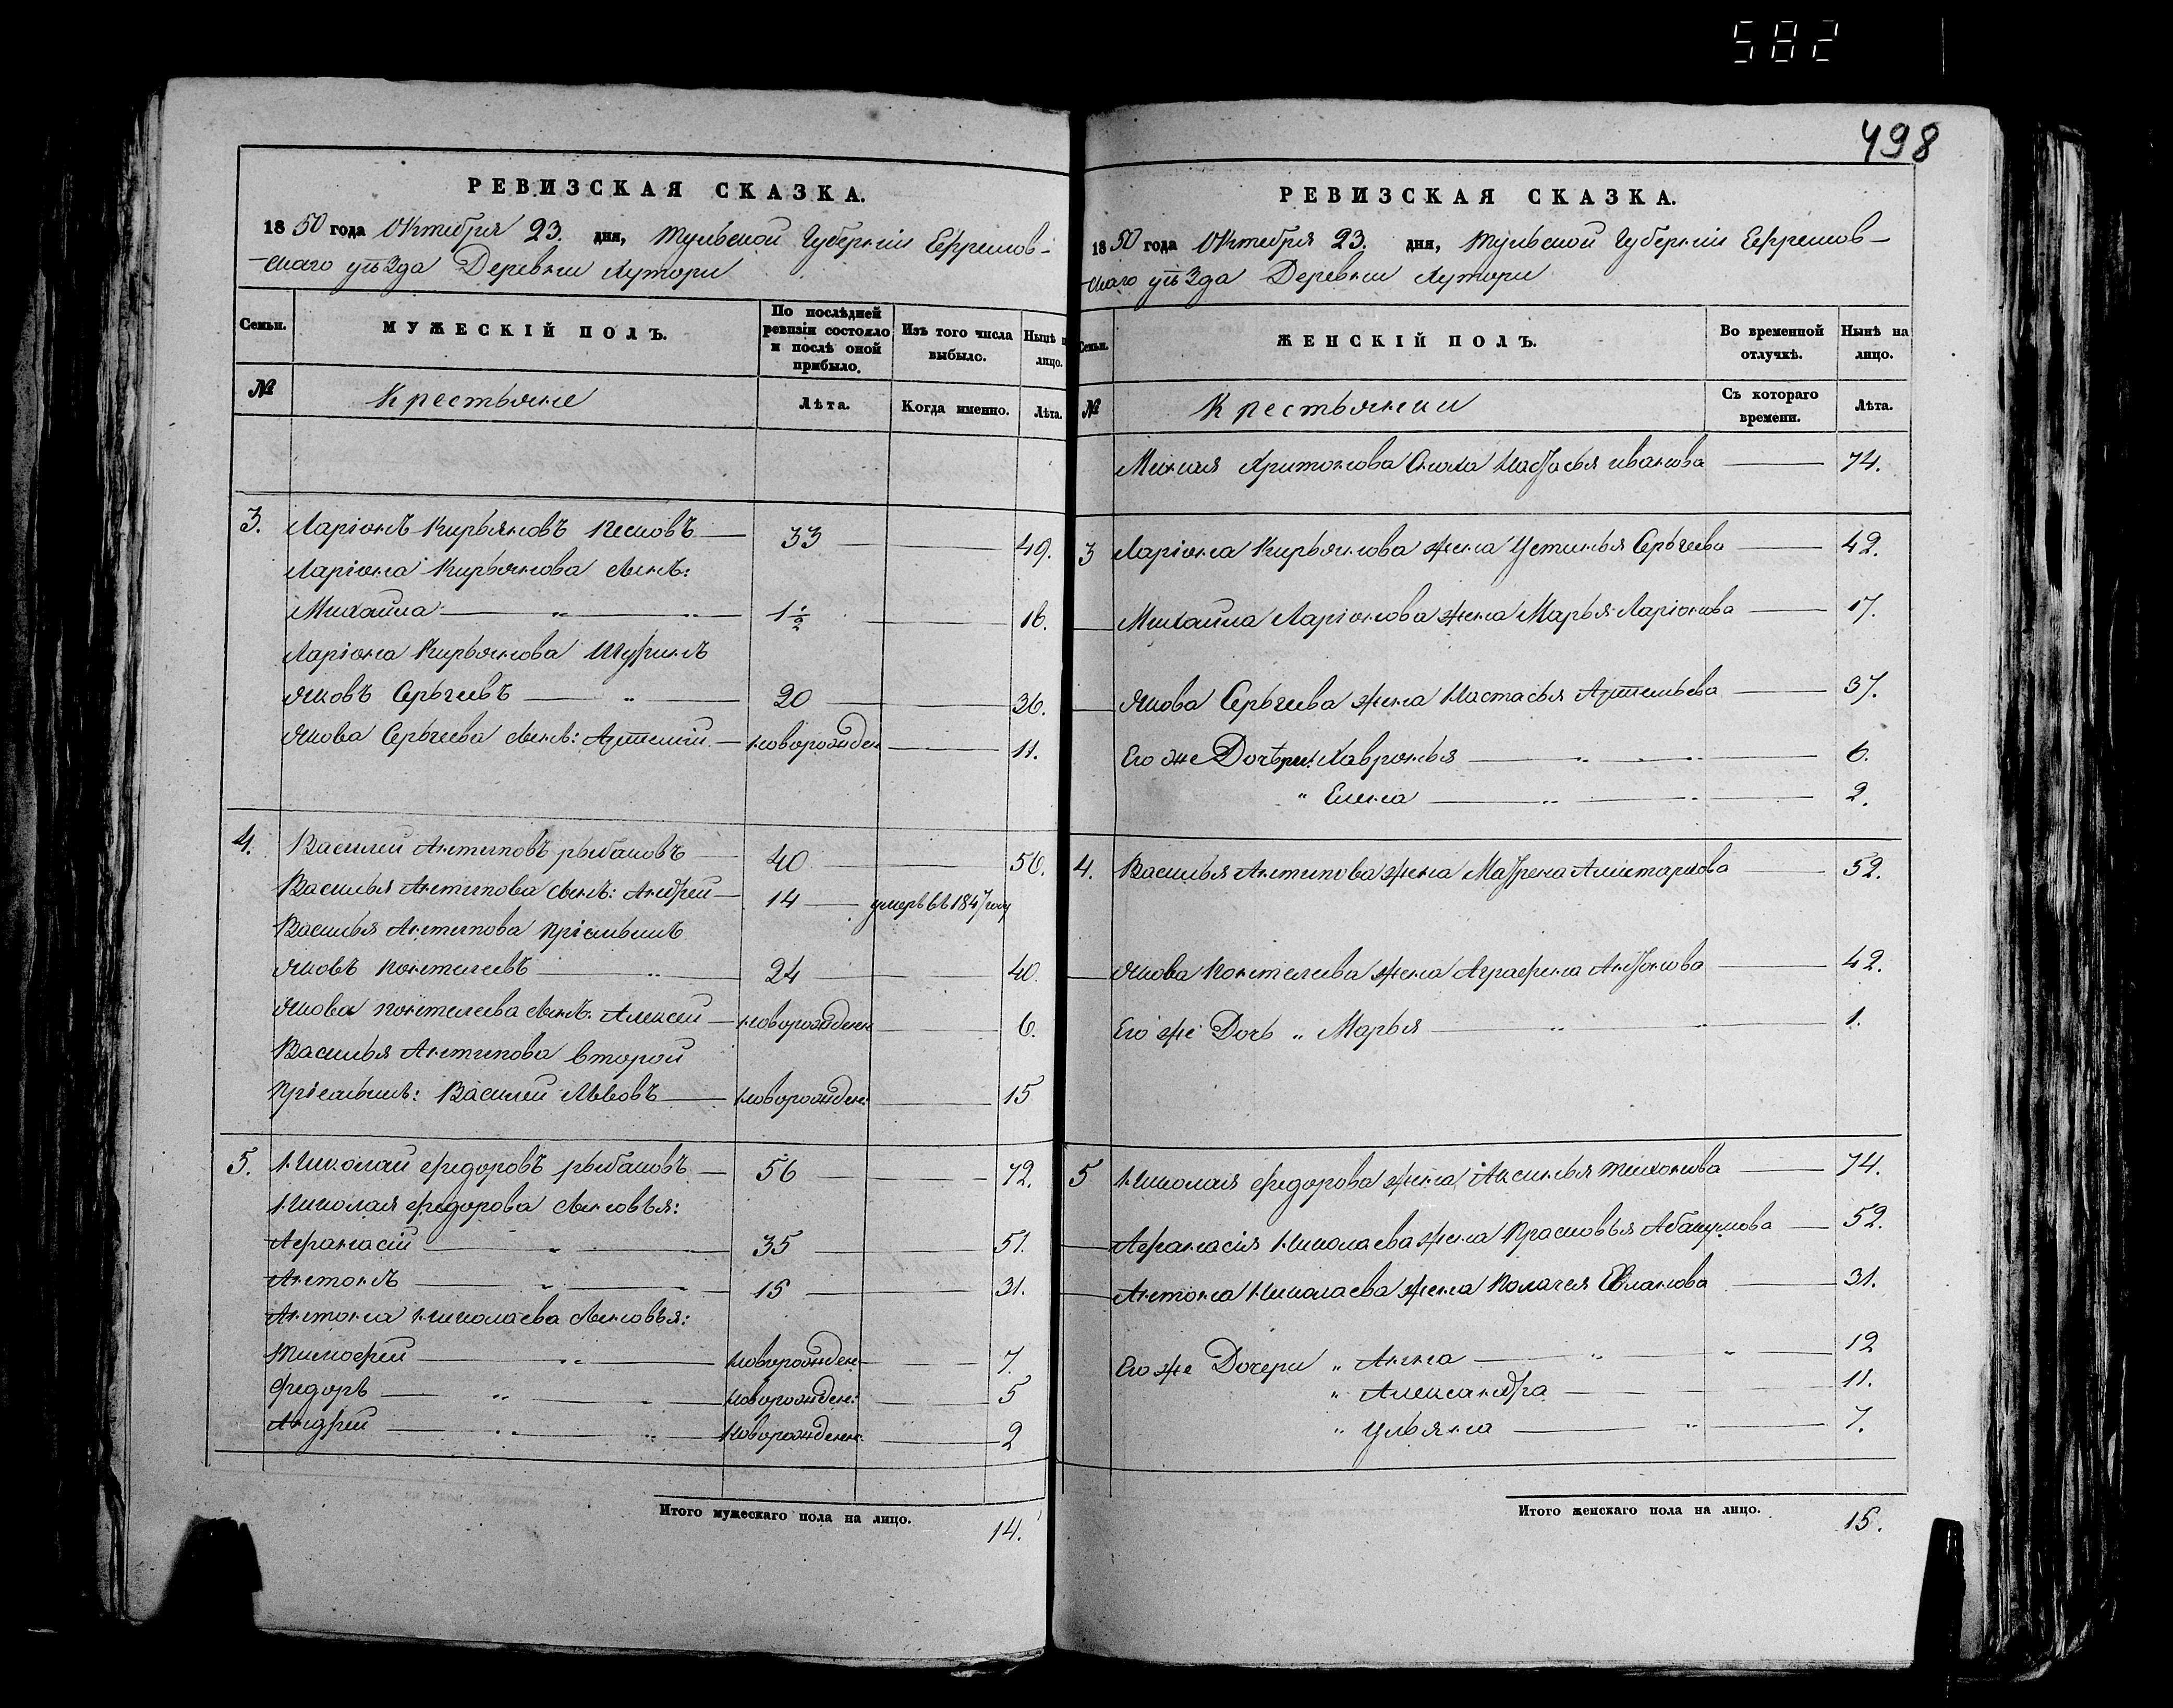 582
498
РЕВИЗСКАЯ СКАЗКА.
1850 года Октября 23. дня, Тульской Губерніи Ефремов-
скаго уѣзда Деревни Хутори
Семьи. МУЖЕСКІЙ ПОЛЪ. По послѣдней ревизіи состояло и послѣ оной прибыло. Изъ того числа выбыло. Нынѣ н лицо.
№ Крестьяне Лѣта. Когда именно. Лѣта.
3. Ларіонъ Кирьяновъ 33 49.
Ларіона Кирьянова сынъ:
Михайла 1½ 16.
Ларіона Кирьянова Шуринъ
Яковъ Сергѣевъ 20 36.
Якова Сергѣева сынъ: Артемій новорожден 11.
4. Василей Антиповъ рыбаковъ 40 56.
Василья Антипова сынъ: Андрей 14 умеръ въ 1847 году
Василья Антипова пріемышъ
Яковъ Понтелеевъ 24 40.
Якова Понтелеева сынъ: Алексей новорожденн 6.
Василья Антипова второй
пріемышъ: Василей Львовъ новорожден: 15
5. Николай Федоровъ рыбаковъ 56 72.
Николая Федорова сыновья:
Афанасій 35 51.
Антонъ 15 31.
Антона Николаева сыновья:
Тимофей новорожден 7.
Федоръ новорожден: 5
Андрей новорожденн: 2
Итого мужескаго пола на лицо. 14.
РЕВИЗСКАЯ СКАЗКА.
1850 года Октября 23. дня, Тульской Губерніи Ефремов-
скаго уѣзда Деревни Хутори
Семьи. ЖЕНСКІЙ ПОЛЪ. Во временной отлучкѣ. Нынѣ на лицо.
№ Крестьянки Съ котораго времени. Лѣта.
Харитонова Сноха Настасья Иванова 74.
3 Ларіона Кирьянова жена Устинья Сергѣева 42.
Михайла Ларіонова жена Марья Ларіонова 17.
Якова Сергѣева жена Настасья Артемьева 37.
Его же Дочѣри: Хавронья 6.
" Елена 2.
4. Василья Антипова жена Матрена Алистархова 52.
Якова Понтелеева жена Аграфена Антонова 42.
Его же Дочь " Марья 1.
5 Николая Федорова жена Аксинья Тихонова 74.
Афанасія Николаева жена Прасковья Абакумова 52.
Антона Николаева жена Полагея Евланова 31.
Его же Дочери " Анна 12
" Александра 11.
" Ульяна 7.
Итого женскаго пола на лицо. 15.